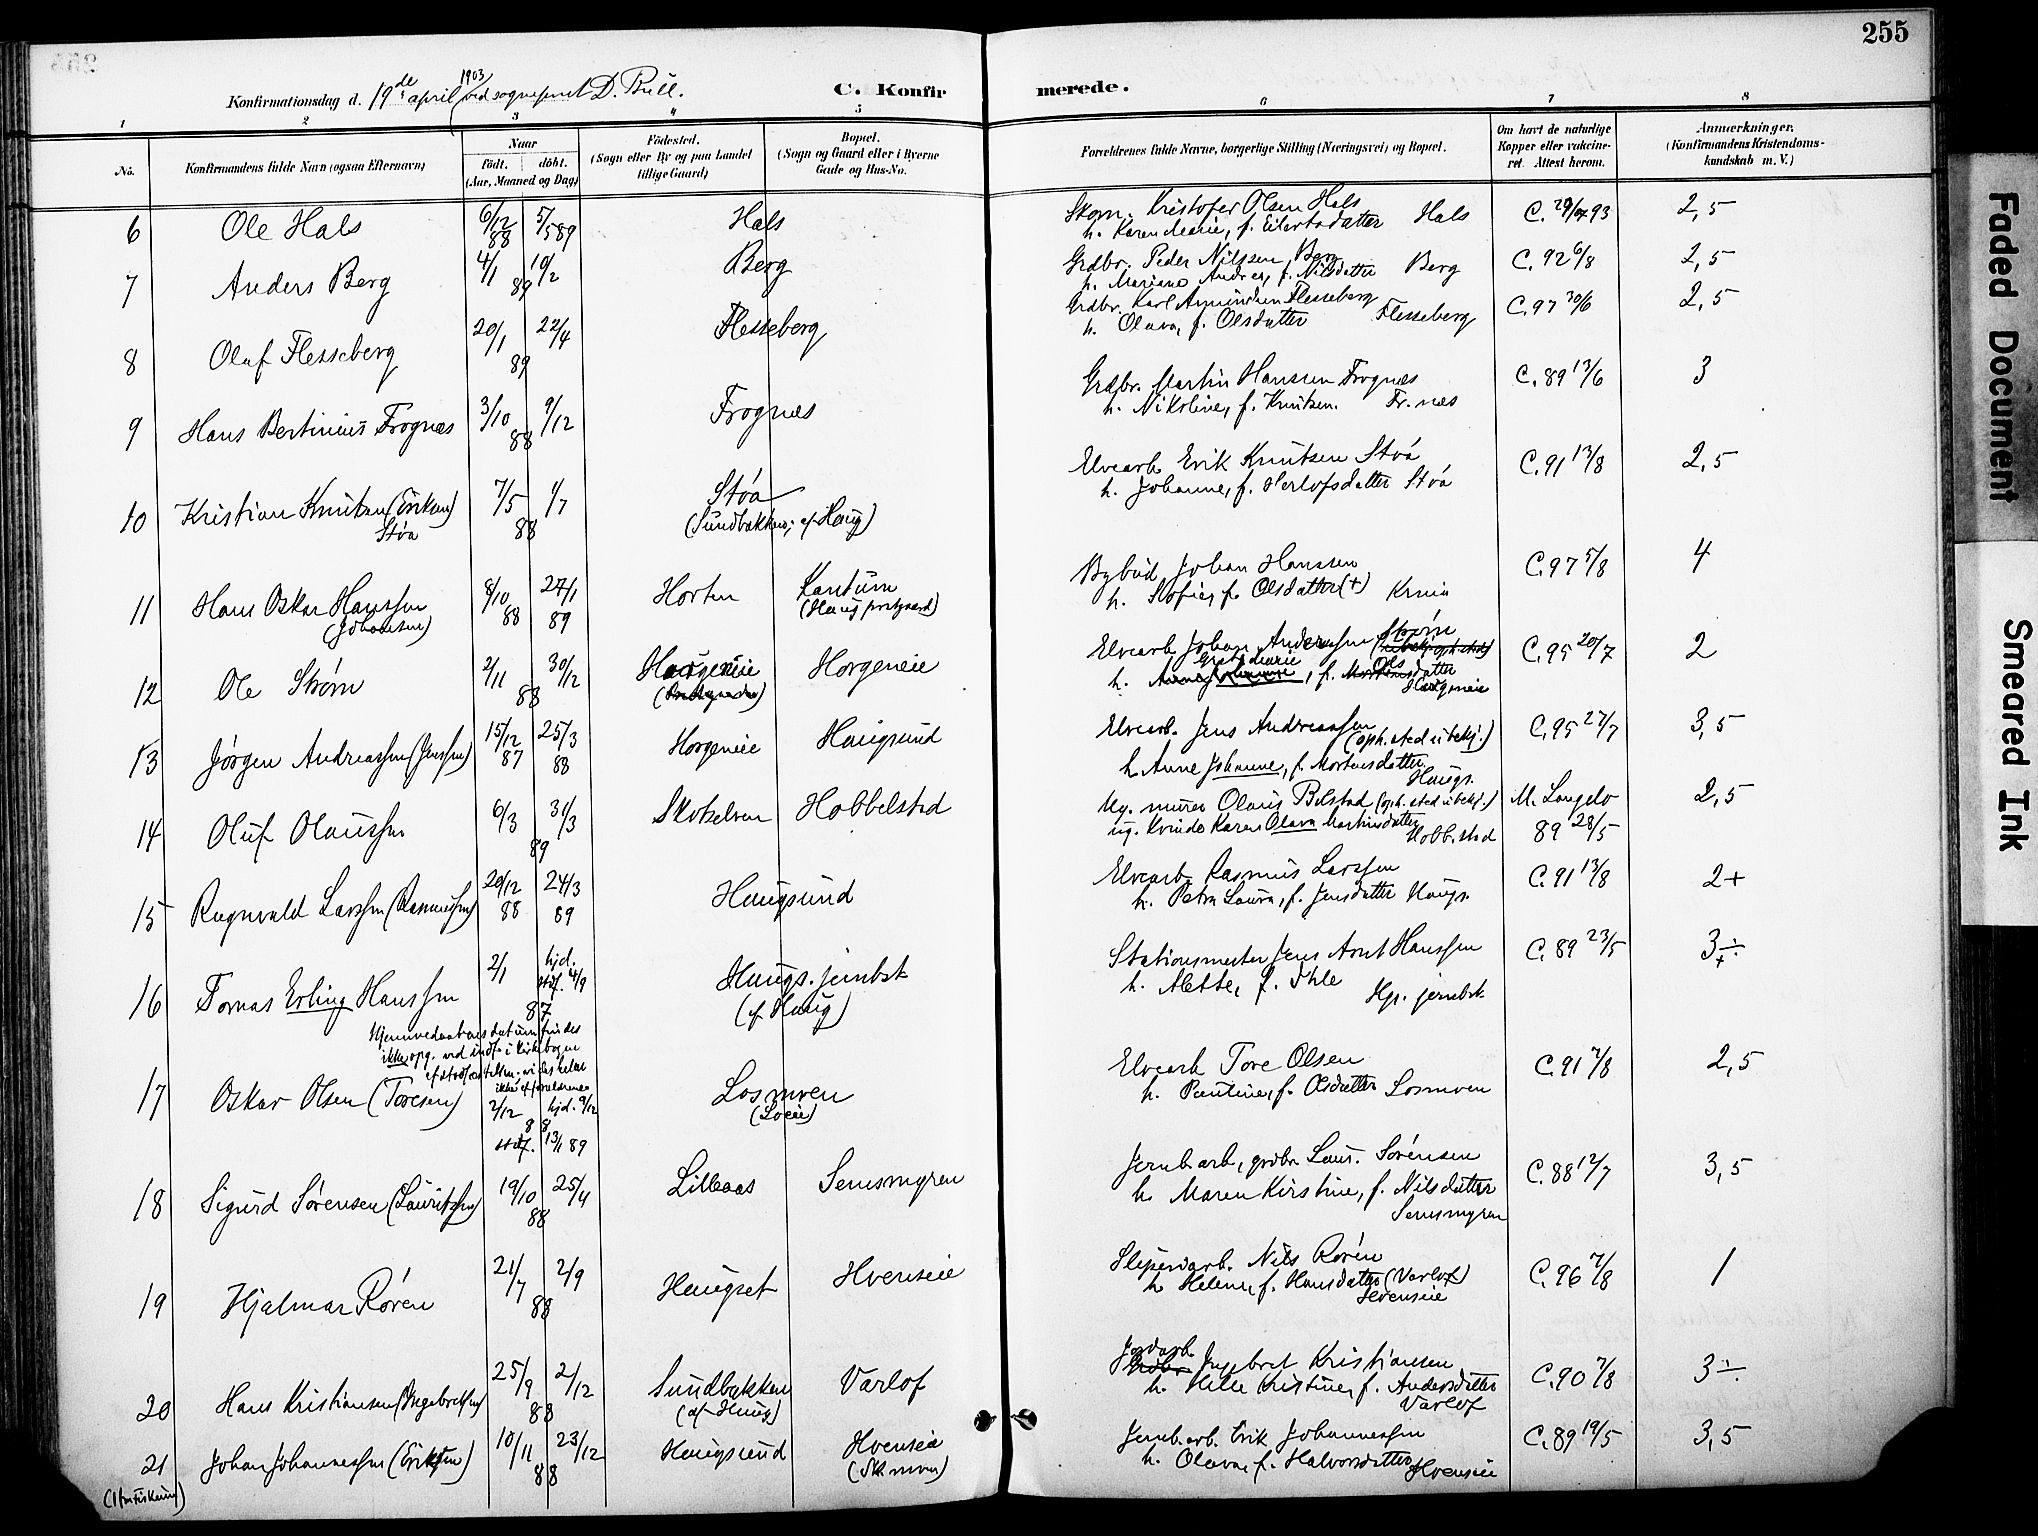 255
Konfirmationsdag d. 19de april 1903 ved sogneprest D. Bull.
C. Konfirmerede.
1 2 3 4 5 6 7 8
No. Konfirmandens fulde Navn (ogsaa Efternavn) Naar Födt. döbt. (Aar, Maaned og Dag) Födested. (Sogn eller By og paa Landet tillige Gaard) Bopæl. (Sogn og Gaard eller i Byerne Gade og Hus-No.
Forældrenes fulde Navne, borgerlige Stilling (Næringsvei) og Bopæl. Om havt de naturlige Kopper eller vaccineret. Attest herom. Anmærkninger. (Konfirmandens Kristendomskundskab m. V.)
6 Ole Hals 6/12 88 5/5 89 Hals Kristofer Olsen Hals C. 93 2,5
h. Karen Marie, f. Eilertsdatter Hals
7 Anders Berg 4/1 10/2 89 Berg Grdbr. Peder Nilssen Berg C. 92 6/8 2,5
h. Mariane Andrea, f. Nilsdatter Berg
8 Oluf Flesseberg 20/1 22/4 89 Flesseberg Grdbr. Karl Amundsen Flesseberg C. 97 30/6 2,5
h. Olava, f. Olsdatter Flesseberg
9 Hans Bertinius Frognæs 3/10 9/12 88 Frognæs Grdbr. Martin Hanssen Frognæs C. 89 13/6 3
h. Nikoline, f. Knutsen. Fr.næs
10 Kristian Knutsen (Eriksen) Støa 7/5 1/7 88 Støa (Sundbakken; cf Haug) Elvearb. Erik Knutsen Støa C. 91 13/8 2,5
h. Johanne, f. Herlofsdatter Støa
11 Hans Oskar Hanssen (Johansen) 8/10 88 27/1 89 Horten (Haug prestgaard) Bybud Johan Hanssen C. 97 5/8 4
h. Sofie, f. Olsdatter (+)
12 Ole Strøm 2/11 30/12 88 Horgeneie Horgeneie Elvearb. Johan Anderssen Strøm C. 95 20/7 2
h. Grete Marie, f. Olsdatter Horgeneie
13 Jørgen Andreassen (Jenssen) 15/12 87 25/3 88 Horgeneie Haugsund Elvearb. Jens Andreassen (oph.sted ubekj.) C. 95 27/7 3,5
h. Anne Johanne, f. Mortensdatter Haugs.
14 Oluf Olaussen 6/3 31/3 89 Skotselven Hobbelstad Ug. murer Olaus Bilstad (oph.sted ubekj.) M. Langelo 2,5
ug. kvinde Karen Olava Martinsdatter Hobb.stad 89 28/5
15 Ragnvald Larssen (Rasmussen) 20/12 88 24/3 89 Haugsund Elvearb. Rasmus Larssen C. 91 13/8 2+
h. Petra Laura, f. Jensdatter Haugs.
16 Tomas Erling Hanssen 2/1 hjd. stdf. 4/9 87 Haugs. jernbst (cf Haug) Stationsmester Jens Arnt Hanssen C. 89 23/5 3÷
h. Alette, f. Ihle Hgs. jernbst
Hjemmedaabens datum findes
ikke opg. ved indf. i kirkebogen
17 Oskar Olsen (Toresen) 2/12 hjd. 9/12 88 stdf. 13/1 89 Losmoen (Loeie) Elvearb Tore Olsen C. 91 7/8 2,5
h. Pauline, f. Olsdatter Losmoen
18 Sigurd Sørensen (Lauritzsen) 19/10 25/4 88 Lilleaas Semsmyren Jernb.arb, grdbr. Laur. Sørensen C. 88 12/7 3,5
h. Maren Kirstine, f. Nilsdatter Semsmyren
19 Hjalmar Røren 21/7 2/9 88 Haugset Hvenseie Sliperiarb. Nils Røren C. 96 7/8 1
h. Helene, f. Hansdatter (Varlof) Hvenseie
20 Hans Kristiansen (Ingebretsen) 25/9 2/12 88 Sundbakken (cf Haug) Varlof Jordarb. Ingebret Kristiansen C. 90 7/8 3÷
h. Helle Kristine, f. Andersdatter Varlof
21 Johan Johannessen (Eriksen) 10/11 23/12 88 Haugsund Hvenseie Jernb.arb. Erik Johannessen C. 89 19/5 3,5
h. Olava, f. Halvorsdatter Hvenseie
Faded Document
Smeared Ink